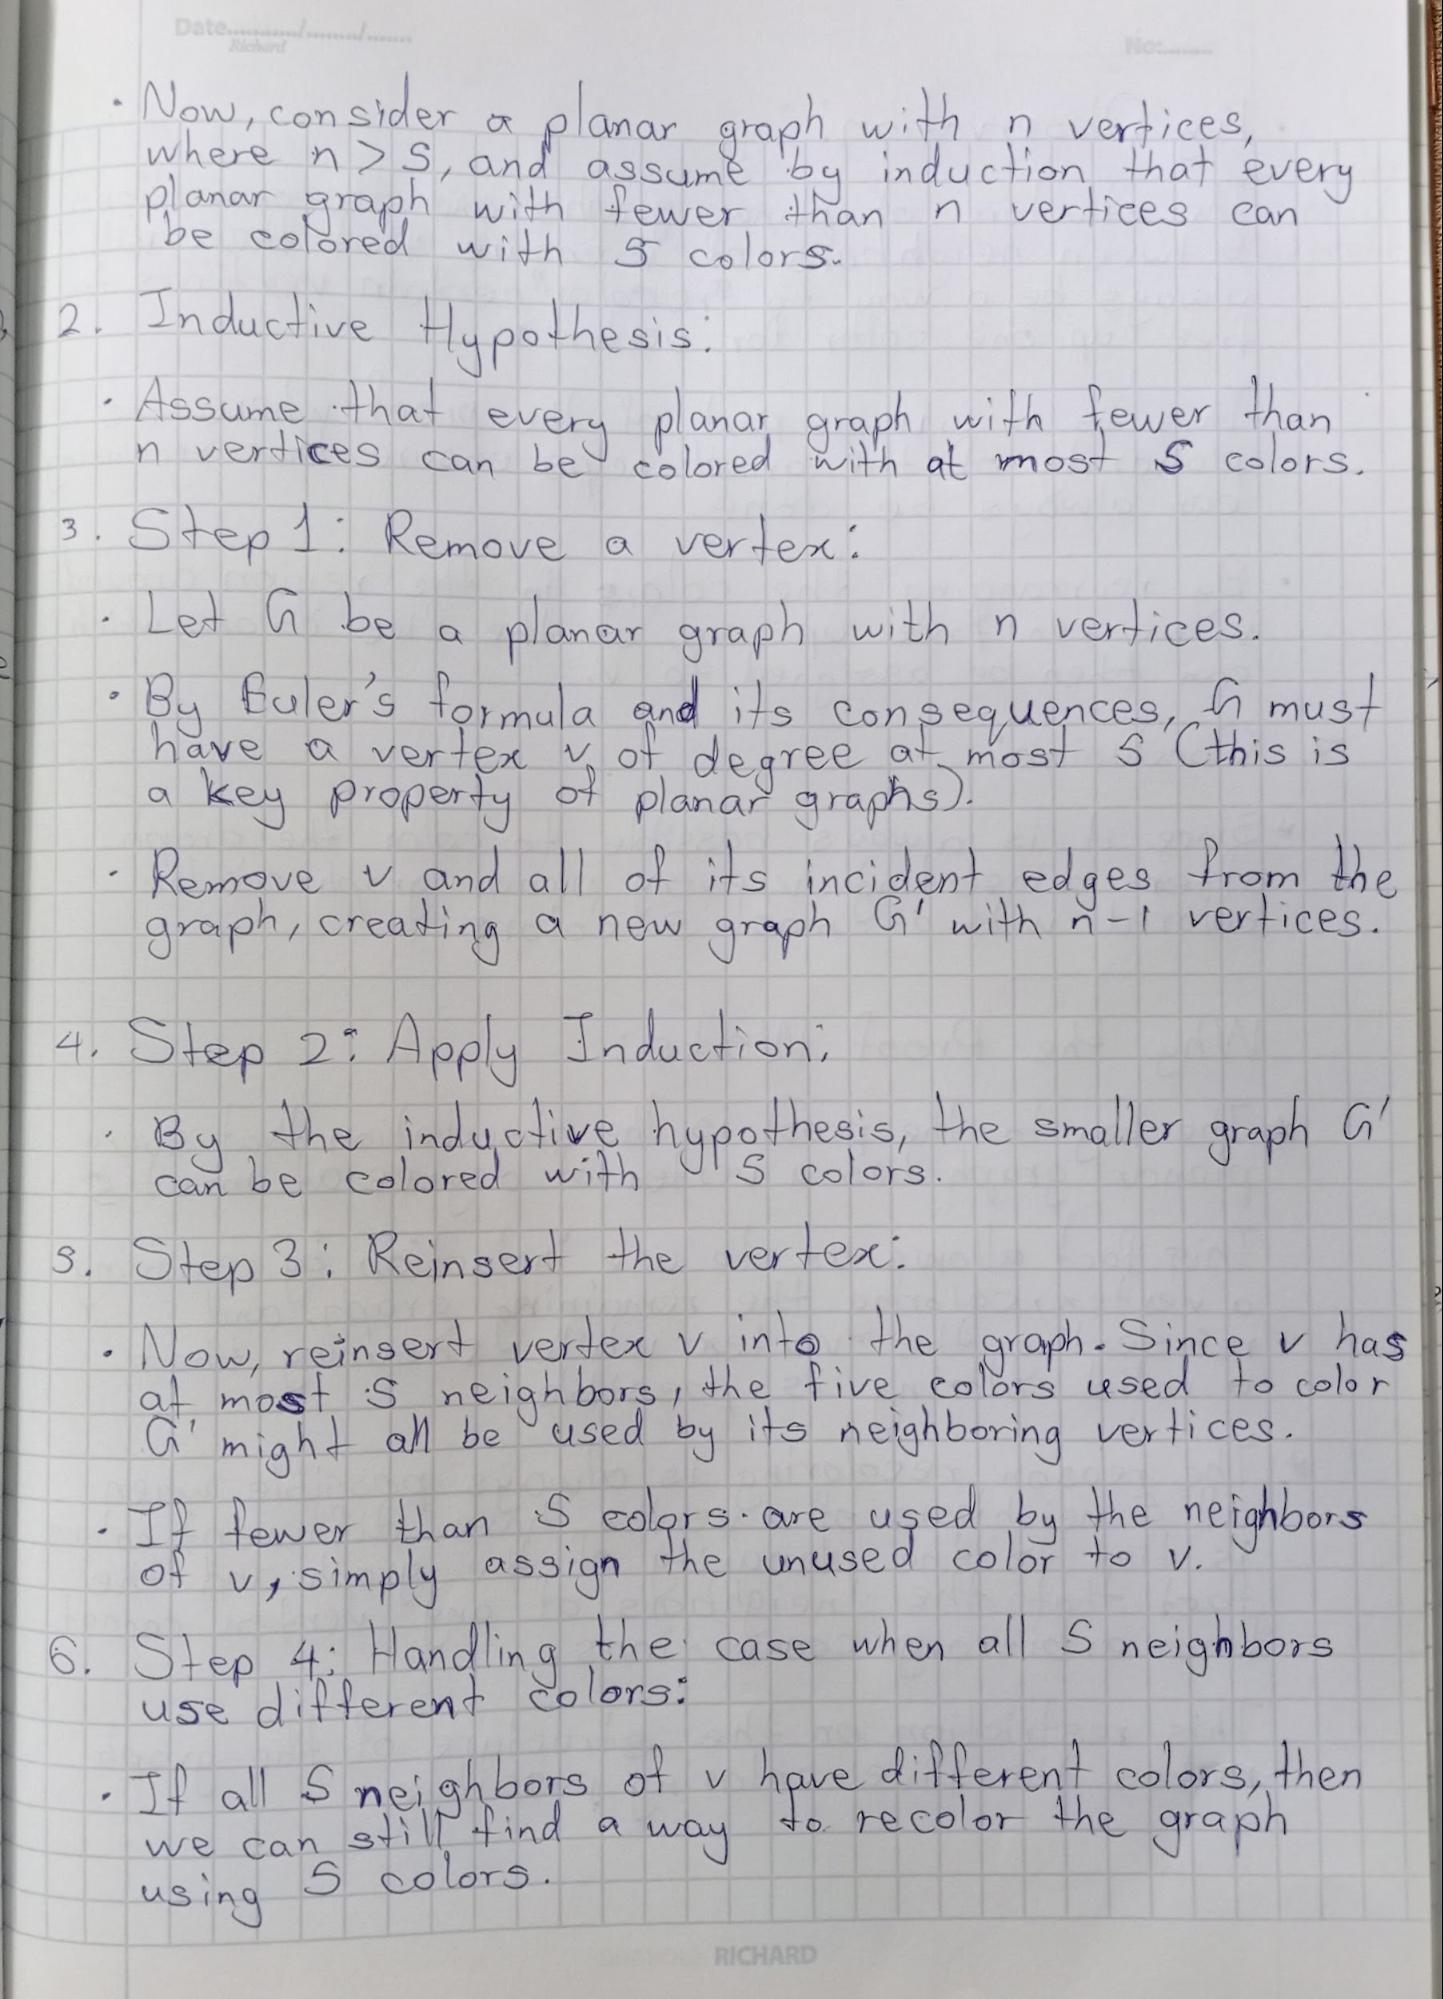 Date........../......../.......
Richard
No:........
• Now, consider a planar graph with n vertices,
where n > 5, and assume by induction that every
planar graph with fewer than n vertices can
be colored with 5 colors.
2. Inductive Hypothesis:
• Assume that every planar graph with fewer than
n vertices can be colored with at most 5 colors.
3. Step 1: Remove a vertex:
• Let G be a planar graph with n vertices.
• By Euler's formula and its consequences, G must
have a vertex v of degree at most 5 (this is
a key property of planar graphs).
• Remove v and all of its incident edges from the
graph, creating a new graph G' with n-1 vertices.
4. Step 2: Apply Induction:
• By the inductive hypothesis, the smaller graph G'
can be colored with 5 colors.
5. Step 3: Reinsert the vertex:
• Now, reinsert vertex v into the graph. Since v has
at most 5 neighbors, the five colors used to color
G' might all be used by its neighboring vertices.
• If fewer than 5 colors are used by the neighbors
of v, simply assign the unused color to v.
6. Step 4: Handling the case when all 5 neighbors
use different colors:
• If all 5 neighbors of v have different colors, then
we can still find a way to recolor the graph
using 5 colors.
RICHARD